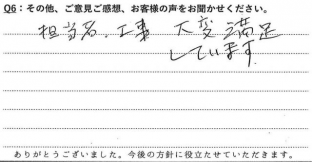 Q6：その他、ご意見ご感想、お客様の声をお聞かせください。
担当者、工事 大変満足
しています。
ありがとうございました。今後の方針に役立たせていただきます。